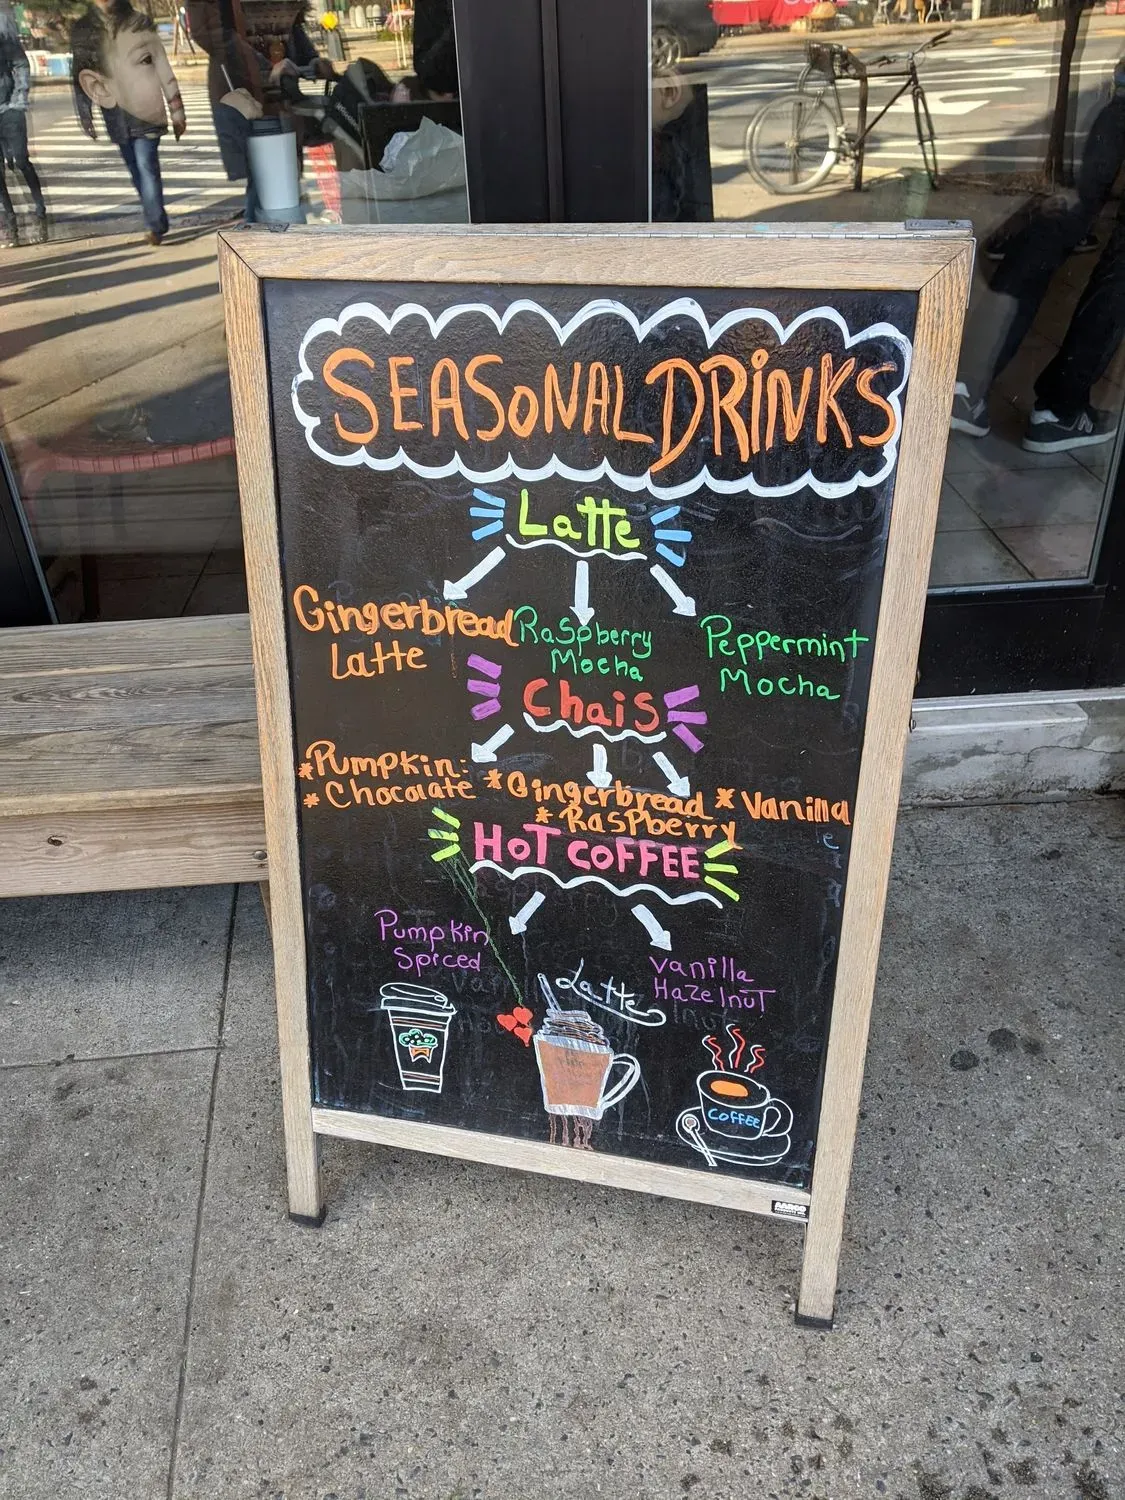 SEASONAL DRINKS
Latte
Gingerbread Latte
Raspberry Mocha
Peppermint Mocha
Chais
*Pumpkin:
* Chocolate
*Gingerbread
*Vanilla
*Raspberry
HOT COFFEE
Pumpkin Spiced
Vanilla Hazelnut
Latte
COFFEE